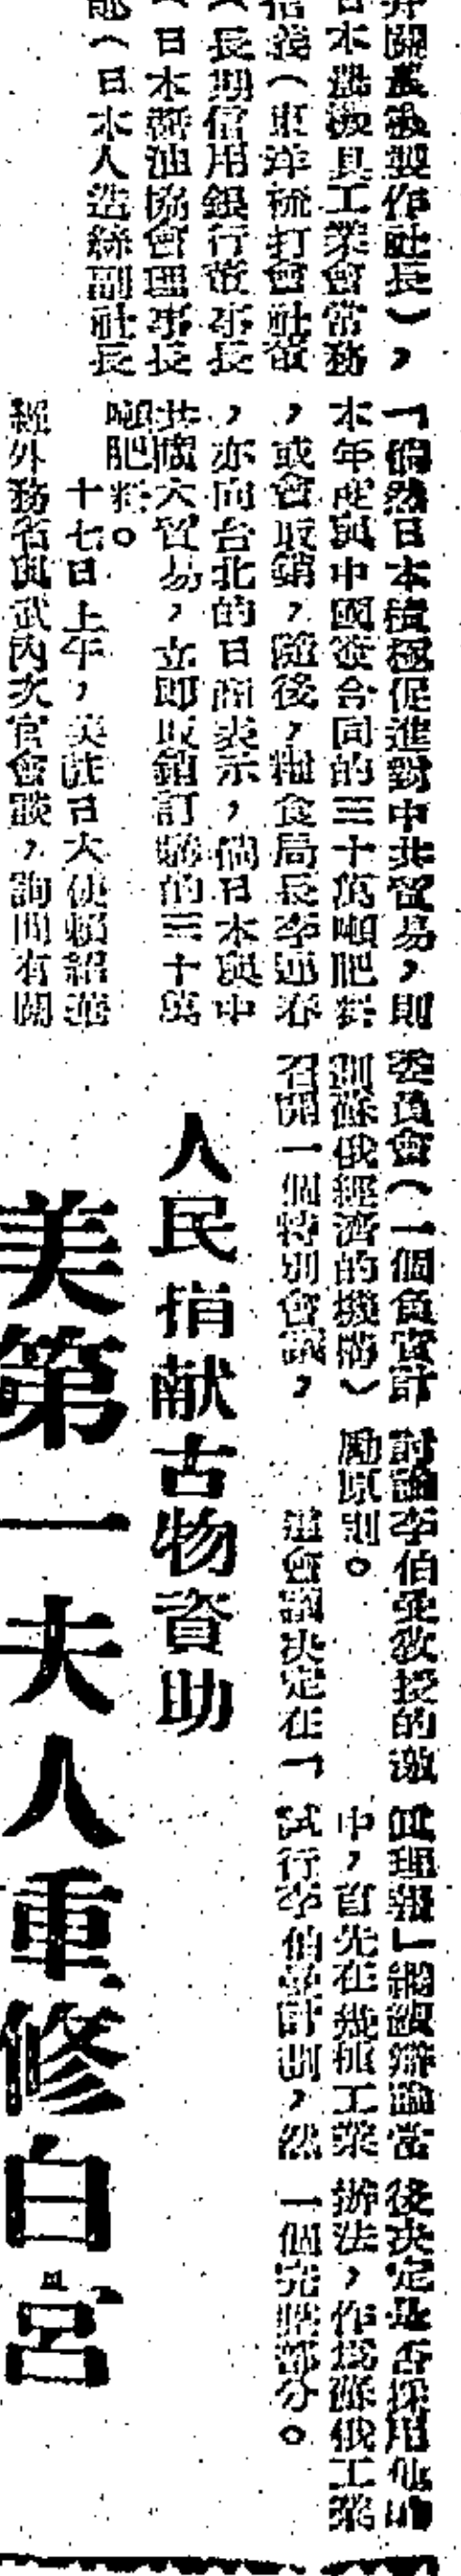 井關農機製作社長），
日本農機具工業會常務
信義（東洋梳打會社董
（長期信用銀行董事長
（日本醬油協會理事長
郎（日本人造絲副社長
「倘然日本積極促進對中共貿易，則
本年度與中國簽合同的三十萬噸肥料
，或會取銷，隨後，糧食局長李連春
，亦向台北的日商表示，倘日本與中
共擴大貿易，立即取銷訂購的三十萬
噸肥料。
十七日上午，美駐日大使賴紹華
經外務省與武內次官會談，詢問有關
委員會（一個負責計
劃蘇俄經濟的機構）
召開一個特別會議，
討論李伯曼教授的激
勵原則。
這會議決定在「
真理報」繼續辯論當
中，首先在幾種工業
試行李伯曼計劃，然
後決定是否採用他的
辦法，作爲蘇俄工業
一個完整部分。
人民捐献古物資助
美第一夫人重修白宮